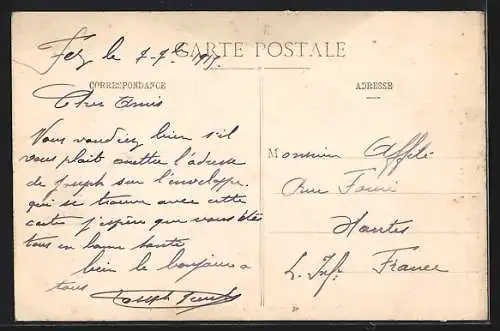 Fez le 7-7bre 1917
CARTE POSTALE
CORRESPONDANCE
ADRESSE
Cher Amis
Vous voudriez bien s'il
vous plait mettre l'adresse
de Joseph sur l'enveloppe.
qui se trouve avec cette
carte j'espère que vous êtes
tous en bonne santé
bien le bonjour a
tous
Joseph
Monsieur Affilé
rue
Nantes
L. Infre France